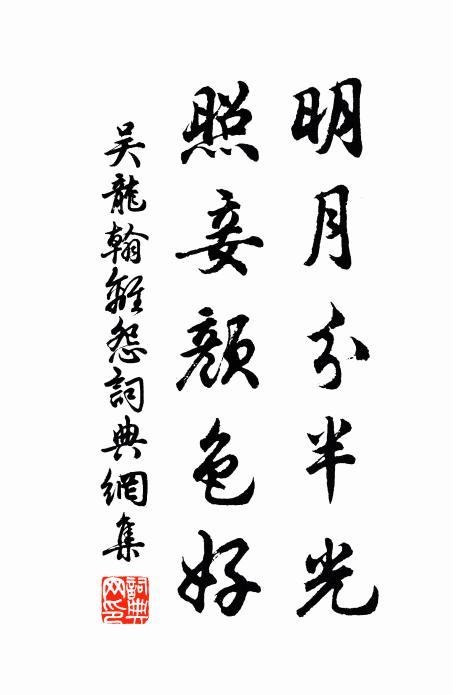 明月分半光
照妾顏色好
吴龍翰離怨詞典網集
詞典網印